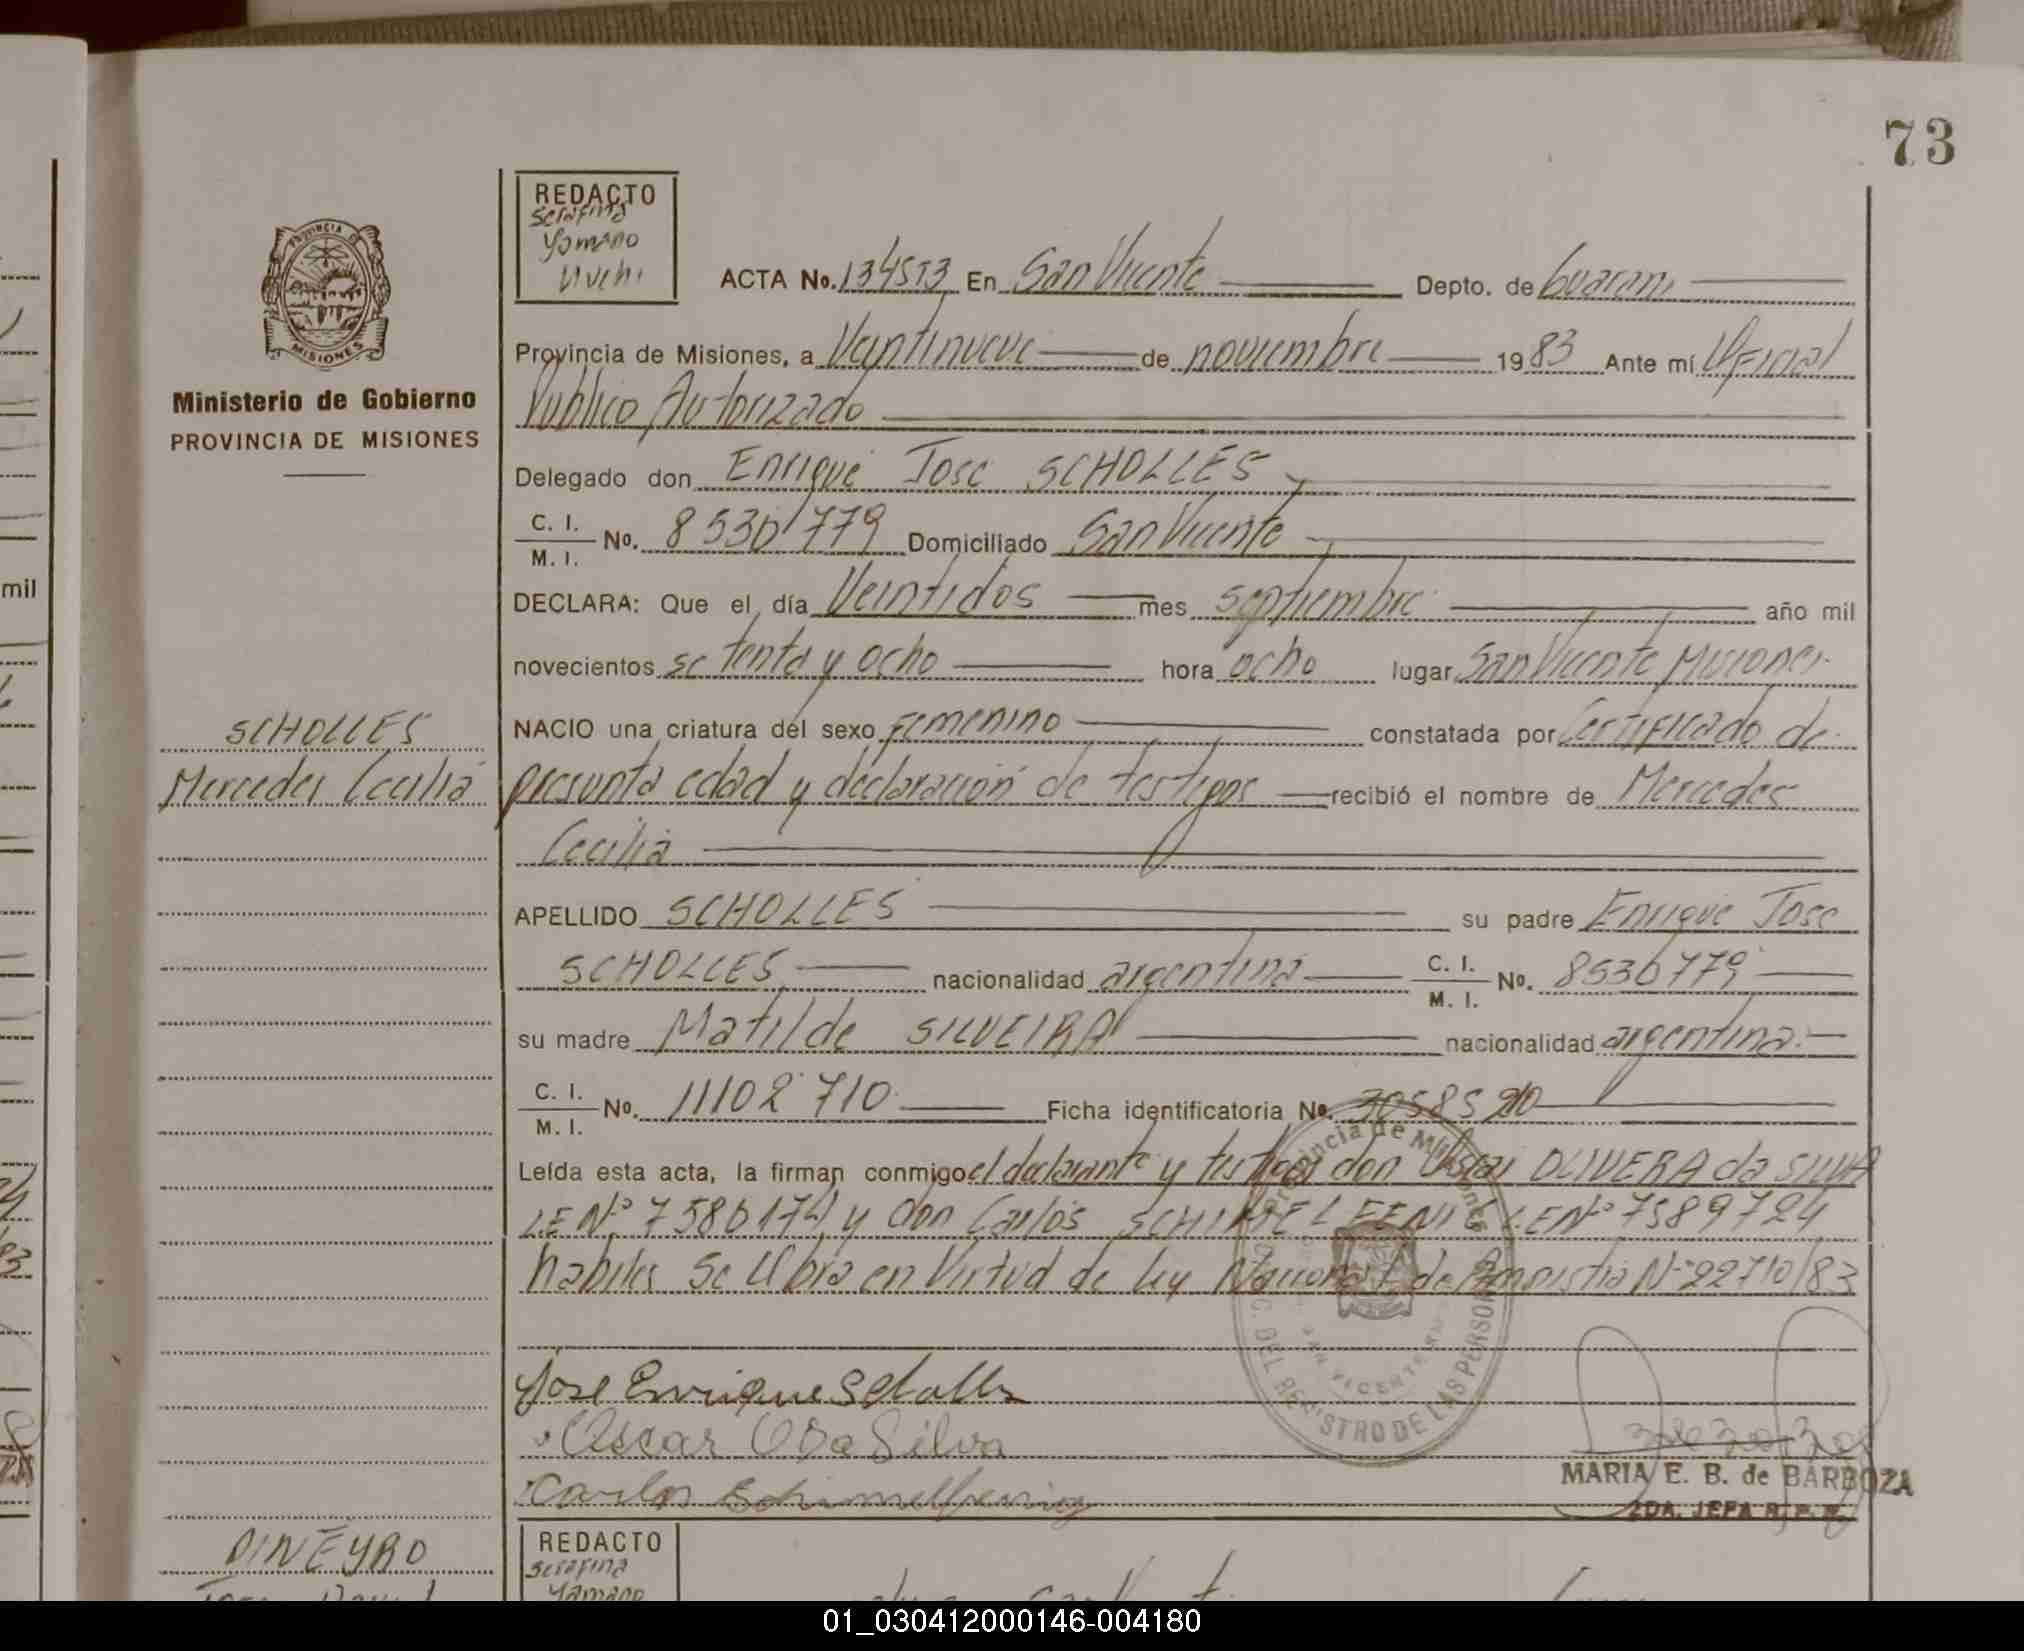 73
REDACTO
Serafina
Yamano
PROVINCIA DE
MISIONES
Ministerio de Gobierno
PROVINCIA DE MISIONES
ACTA No. 134513 En San Vicente Depto. de Guarani
Provincia de Misiones, a Veintinueve de noviembre 1983 Ante mí Oficial
Publico Autorizado
Delegado don Enrique Jose SCHOLLES
C. I. / M. I. No. 8530779 Domiciliado San Vicente
DECLARA: Que el día Veintidos mes septiembre año mil
novecientos setenta y ocho hora ocho lugar San Vicente Misiones
NACIO una criatura del sexo femenino constatada por Certificado de
presunta edad y declaración de testigos recibió el nombre de Mercedes
Cecilia
SCHOLLES
Mercedes Cecilia
APELLIDO SCHOLLES su padre Enrique Jose
SCHOLLES nacionalidad argentina C. I. / M. I. No. 8530779
su madre Matilde SILVEIRA nacionalidad argentina
C. I. / M. I. No. 11102710 Ficha identificatoria No.
Leída esta acta, la firman conmigo el declarante y testigos don Oscar OLIVERA da SILVA
LE Nº 7580174 y don Carlos SCHIMELFENIG LE Nº 7589724
habiles Se labra en Virtud de ley Nacional de Amnistia Nº 22710/83
Jose Enrique Scholles
Oscar O Da Silva
Carlos Schimelfenig
Provincia de Misiones
DEL REGISTRO DE LAS PERSONAS
SAN VICENTE
MARIA E. B. de BARBOZA
2DA. JEFA R. P. V.
DINEYRO
REDACTO
Serafina
Yamano
mil
01_030412000146-004180